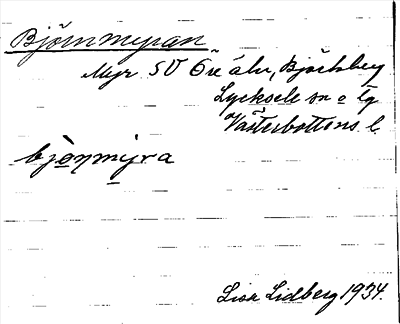 Björnmyran
Myr SV Öre älv, Björkberg
Lycksele sn o tg
Västerbottens l.
bjò̱ŋmỳ̱ra
Lisa Lidberg 1934.